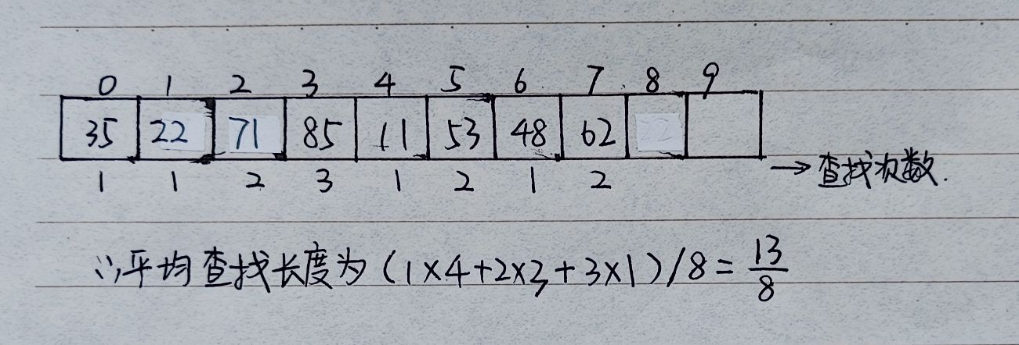 0 1 2 3 4 5 6 7 8 9
35 22 71 85 11 53 48 62
1 1 2 3 1 2 1 2 →查找次数.
∴平均查找长度为(1×4+2×3+3×1)/8=13/8